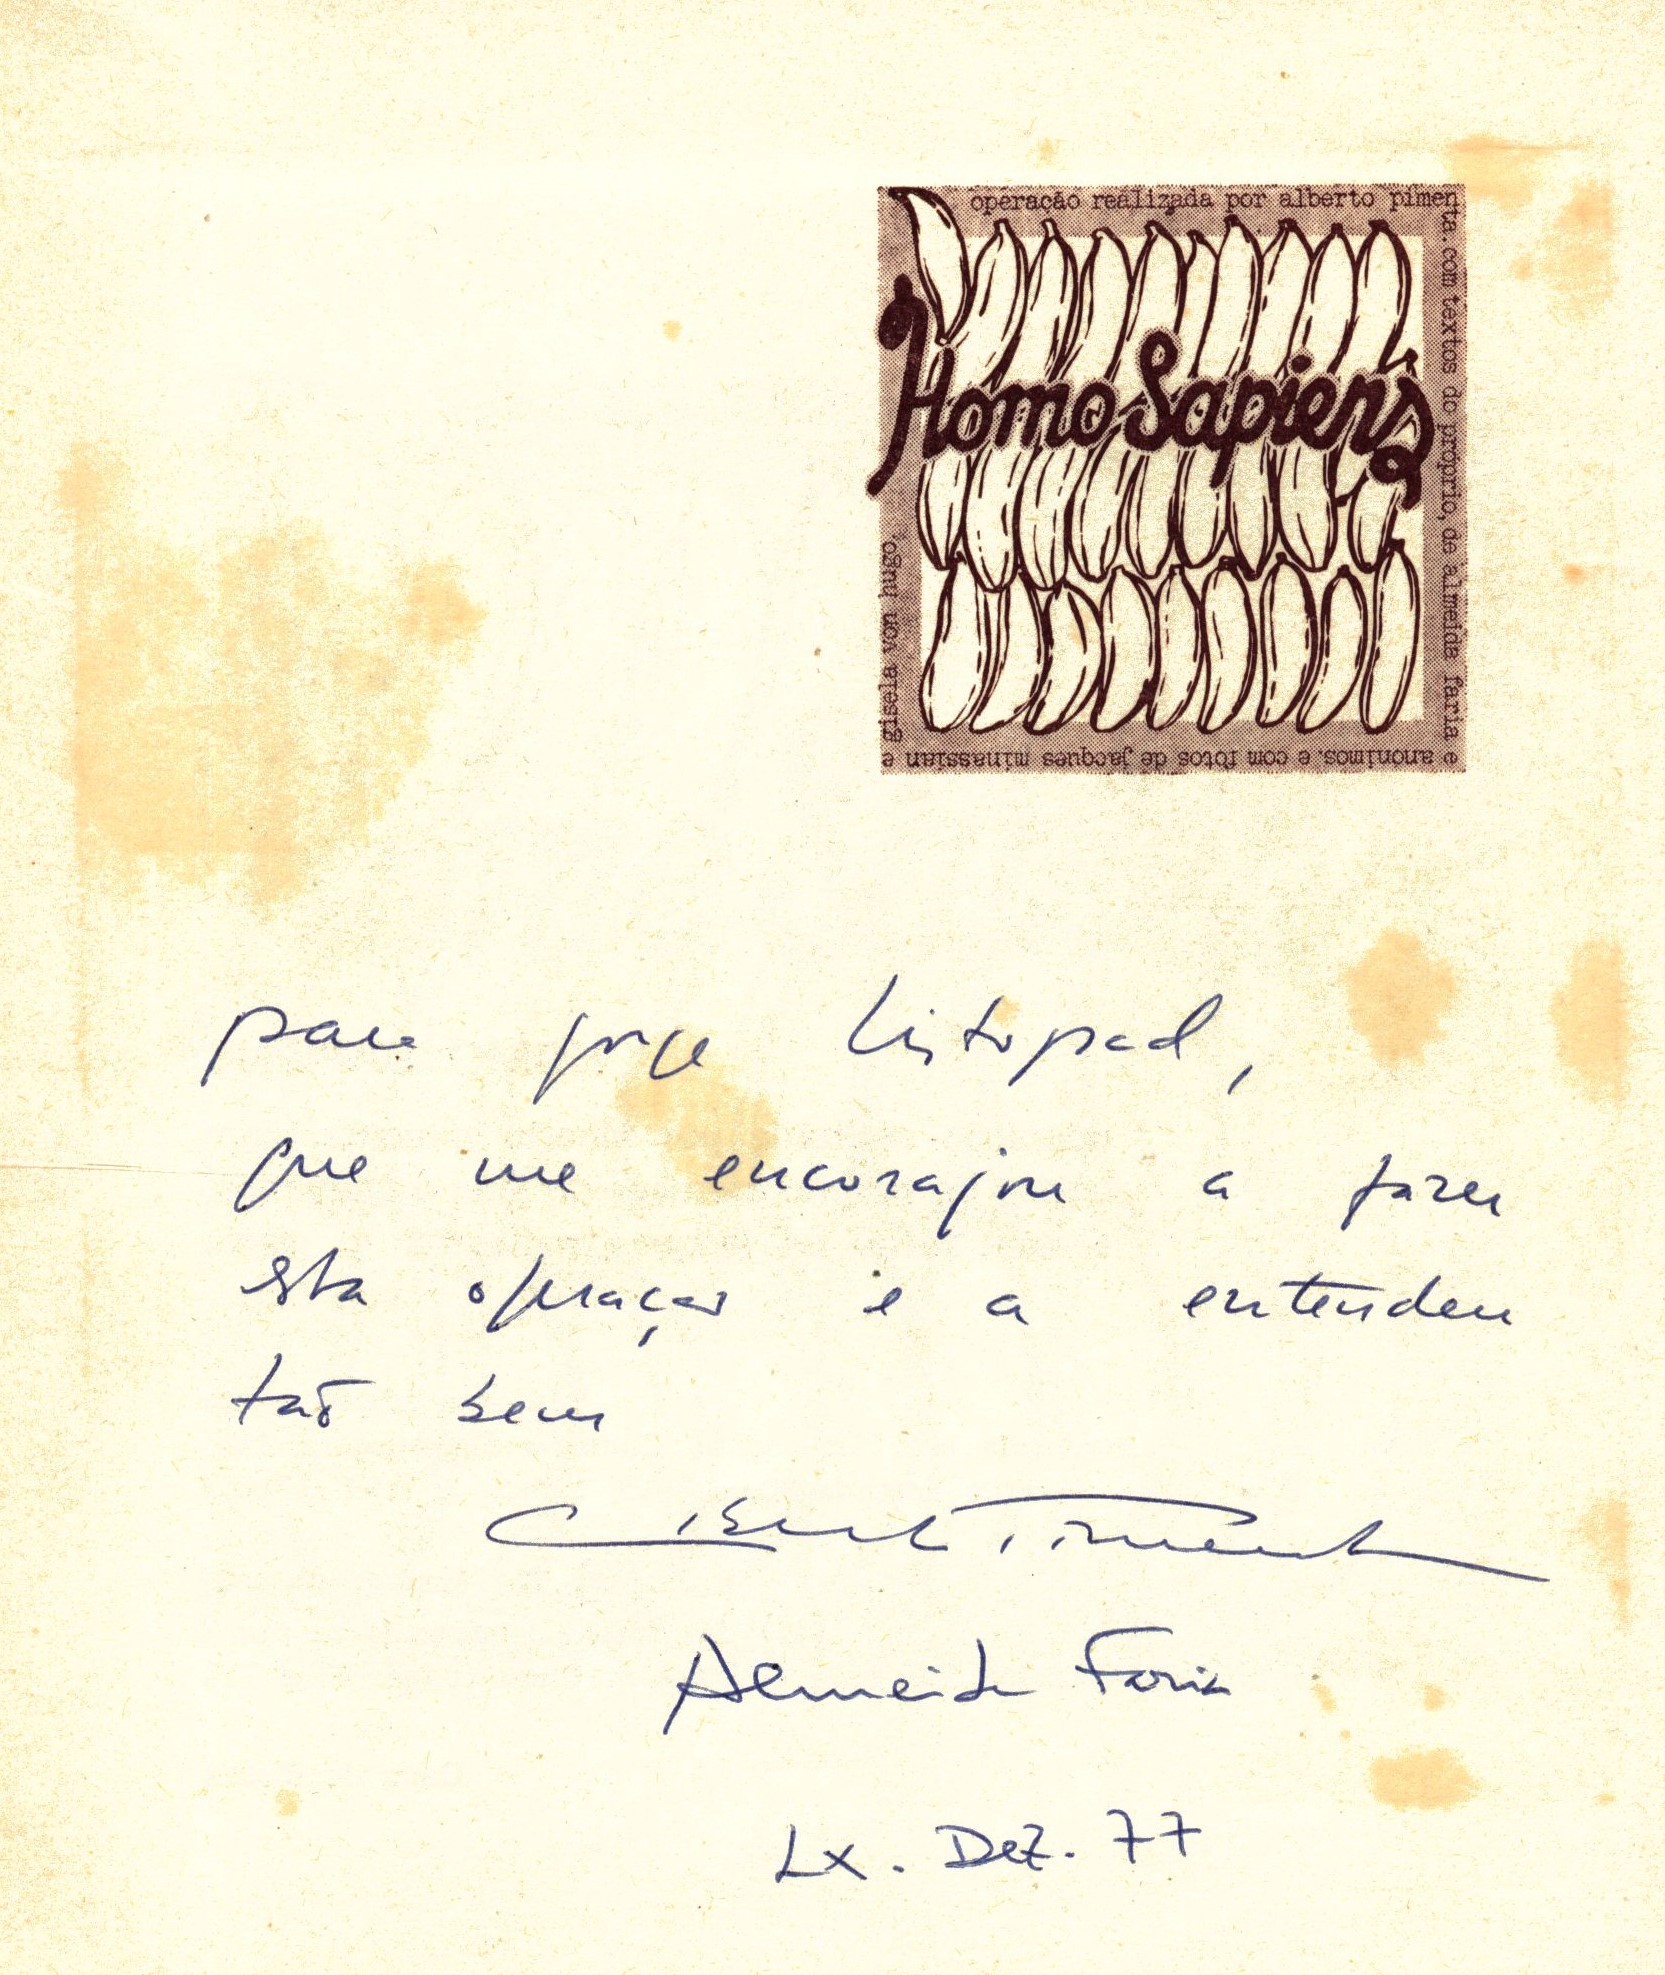 operação realizada por alberto pimenta. com textos do próprio, de almeida faria e anónimos. e com fotos de jacques minassian e gisela von hugo.
Homo Sapiens
para jorge Listopad,
que me encorajou a fazer
esta operação e a entendeu
tão bem
Alberto Pimenta
Almeida Faria
Lx. Dez. 77